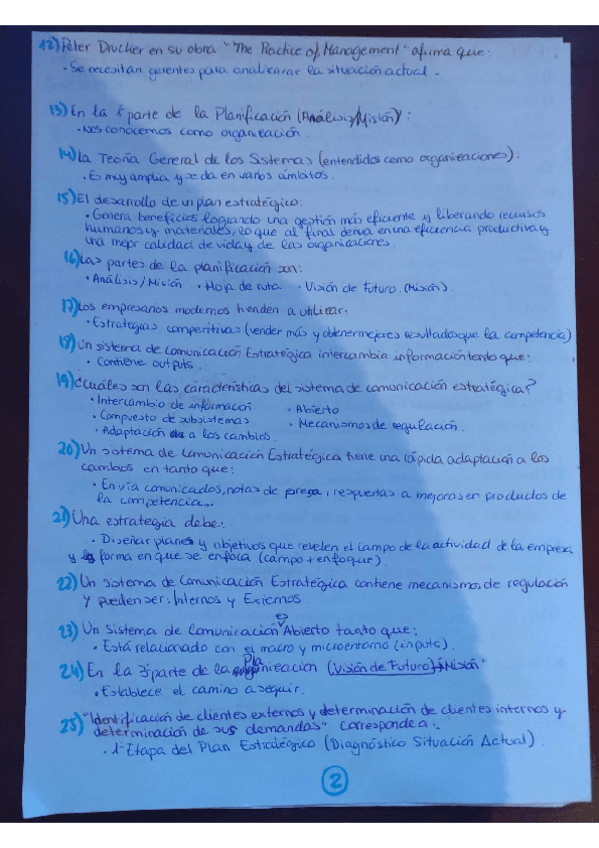 12) Peter Drucker en su obra "The Practice of Management" afirma que:
· Se necesitan gerentes para analizar la situación actual.
13) En la 1ª parte de la Planificación (Análisis/Misión):
· Nos conocemos como organización.
14) La Teoría General de los Sistemas (entendidos como organizaciones):
· Es muy amplia y se da en varios ámbitos.
15) El desarrollo de un plan estratégico:
· Genera beneficios logrando una gestión más eficiente y liberando recursos
humanos y materiales, lo que al final deriva en una eficiencia productiva y
una mejor calidad de vida y de las organizaciones.
16) Las partes de la planificación son:
· Análisis / Misión · Hoja de ruta · Visión de Futuro (Misión).
17) Los empresarios modernos tienden a utilizar:
· Estrategias competitivas (vender más y obtener mejores resultados que la competencia)
18) Un sistema de Comunicación Estratégica intercambia información tanto que:
· Contiene outputs.
19) ¿Cuáles son las características del sistema de comunicación estratégica?
· Intercambio de información · Abierto
· Compuesto de subsistemas · Mecanismos de regulación.
· Adaptación a los cambios.
20) Un sistema de Comunicación Estratégica tiene una rápida adaptación a los
cambios en tanto que:
· Envía comunicados, notas de prensa, respuestas a mejoras en productos de
la competencia...
21) Una estrategia debe:
· Diseñar planes y objetivos que revelen el campo de la actividad de la empresa
y la forma en que se enfoca (campo + enfoque).
22) Un Sistema de Comunicación Estratégica contiene mecanismos de regulación
y pueden ser: Internos y Externos
23) Un Sistema de Comunicación es Abierto tanto que:
· Está relacionado con el macro y microentorno (inputs).
24) En la 3ª parte de la Planificación (Visión de Futuro) "Misión"
· Establece el camino a seguir.
25) "Identificación de clientes externos y determinación de clientes internos y
determinación de sus demandas" corresponde a:
· 1ª Etapa del Plan Estratégico (Diagnóstico Situación Actual).
2